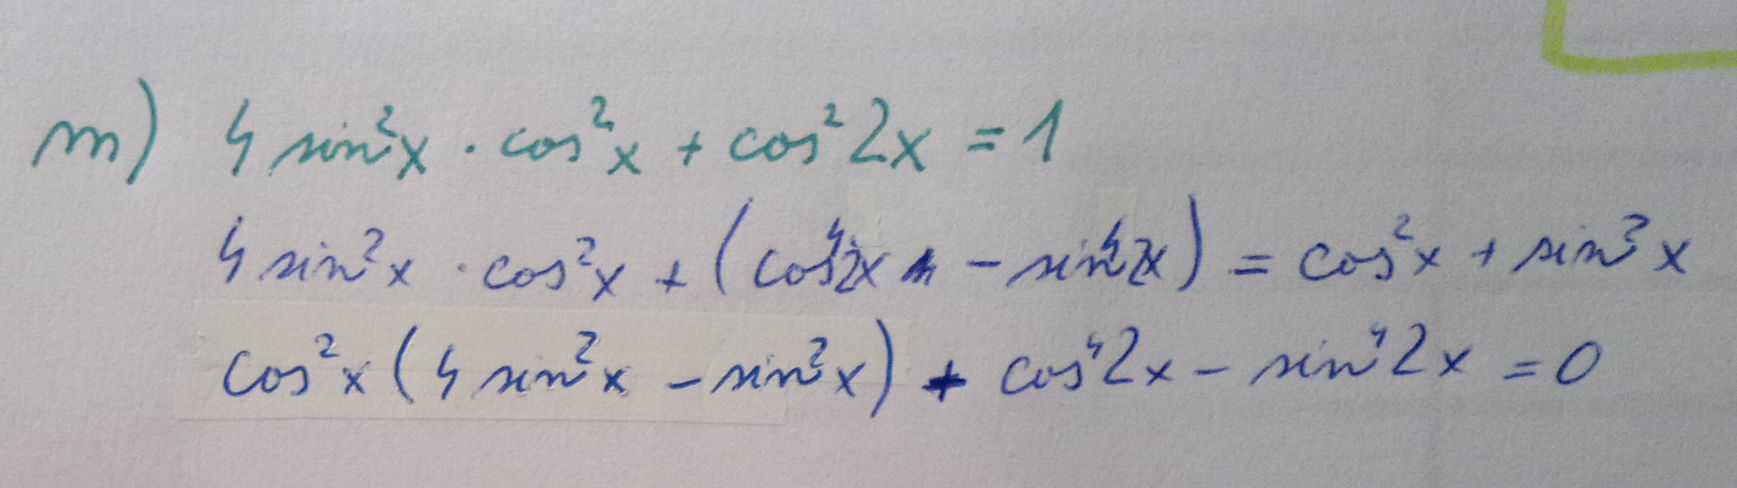 m) 4 sin²x · cos²x + cos² 2x = 1
4 sin²x · cos²x + (cos⁴2x - sin⁴2x) = cos²x + sin²x
cos²x (4 sin²x - sin²x) + cos⁴2x - sin⁴2x = 0